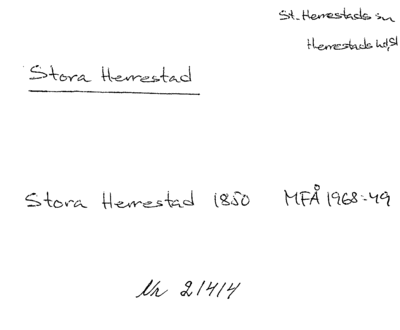 St. Herrestads sn
Herrestads hd, Sk
Stora Herrestad
Stora Herrestad 1850 MFÅ 1968:49
Nr 21414